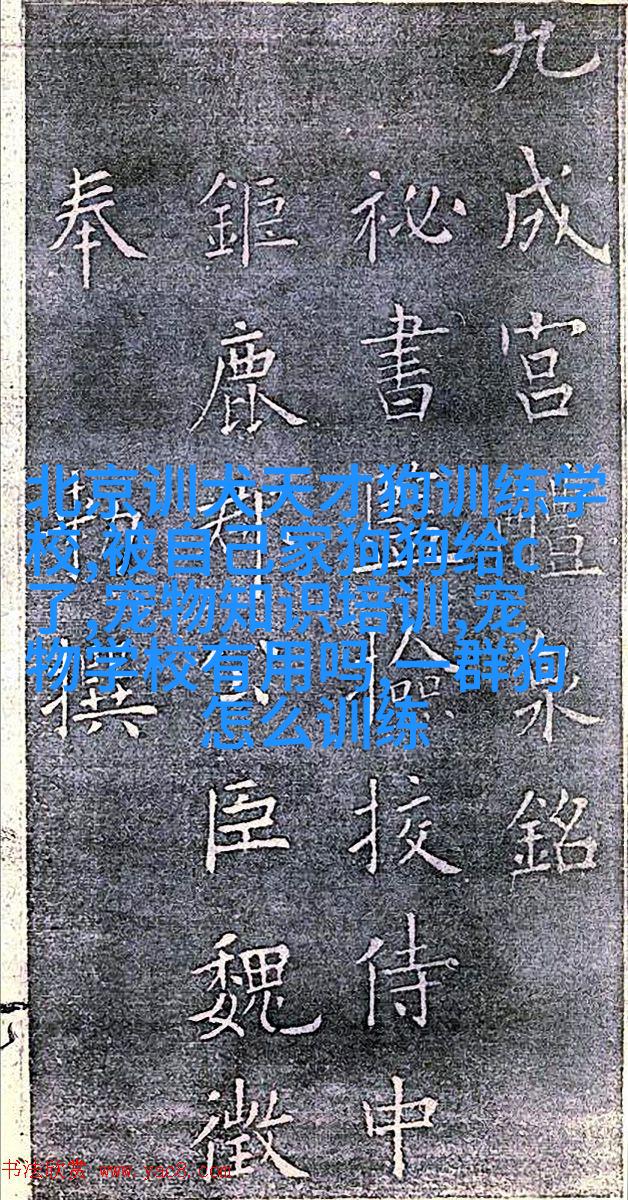 九成宮醴泉銘
祕書監撿挍侍中
鉅鹿郡公臣魏徵
奉勅撰
北京训犬天才狗训练学
校,被自己家狗狗给c
了,宠物知识培训,宠
物学校有用吗,一群狗
怎么训练
书法欣赏 www.yac8.com